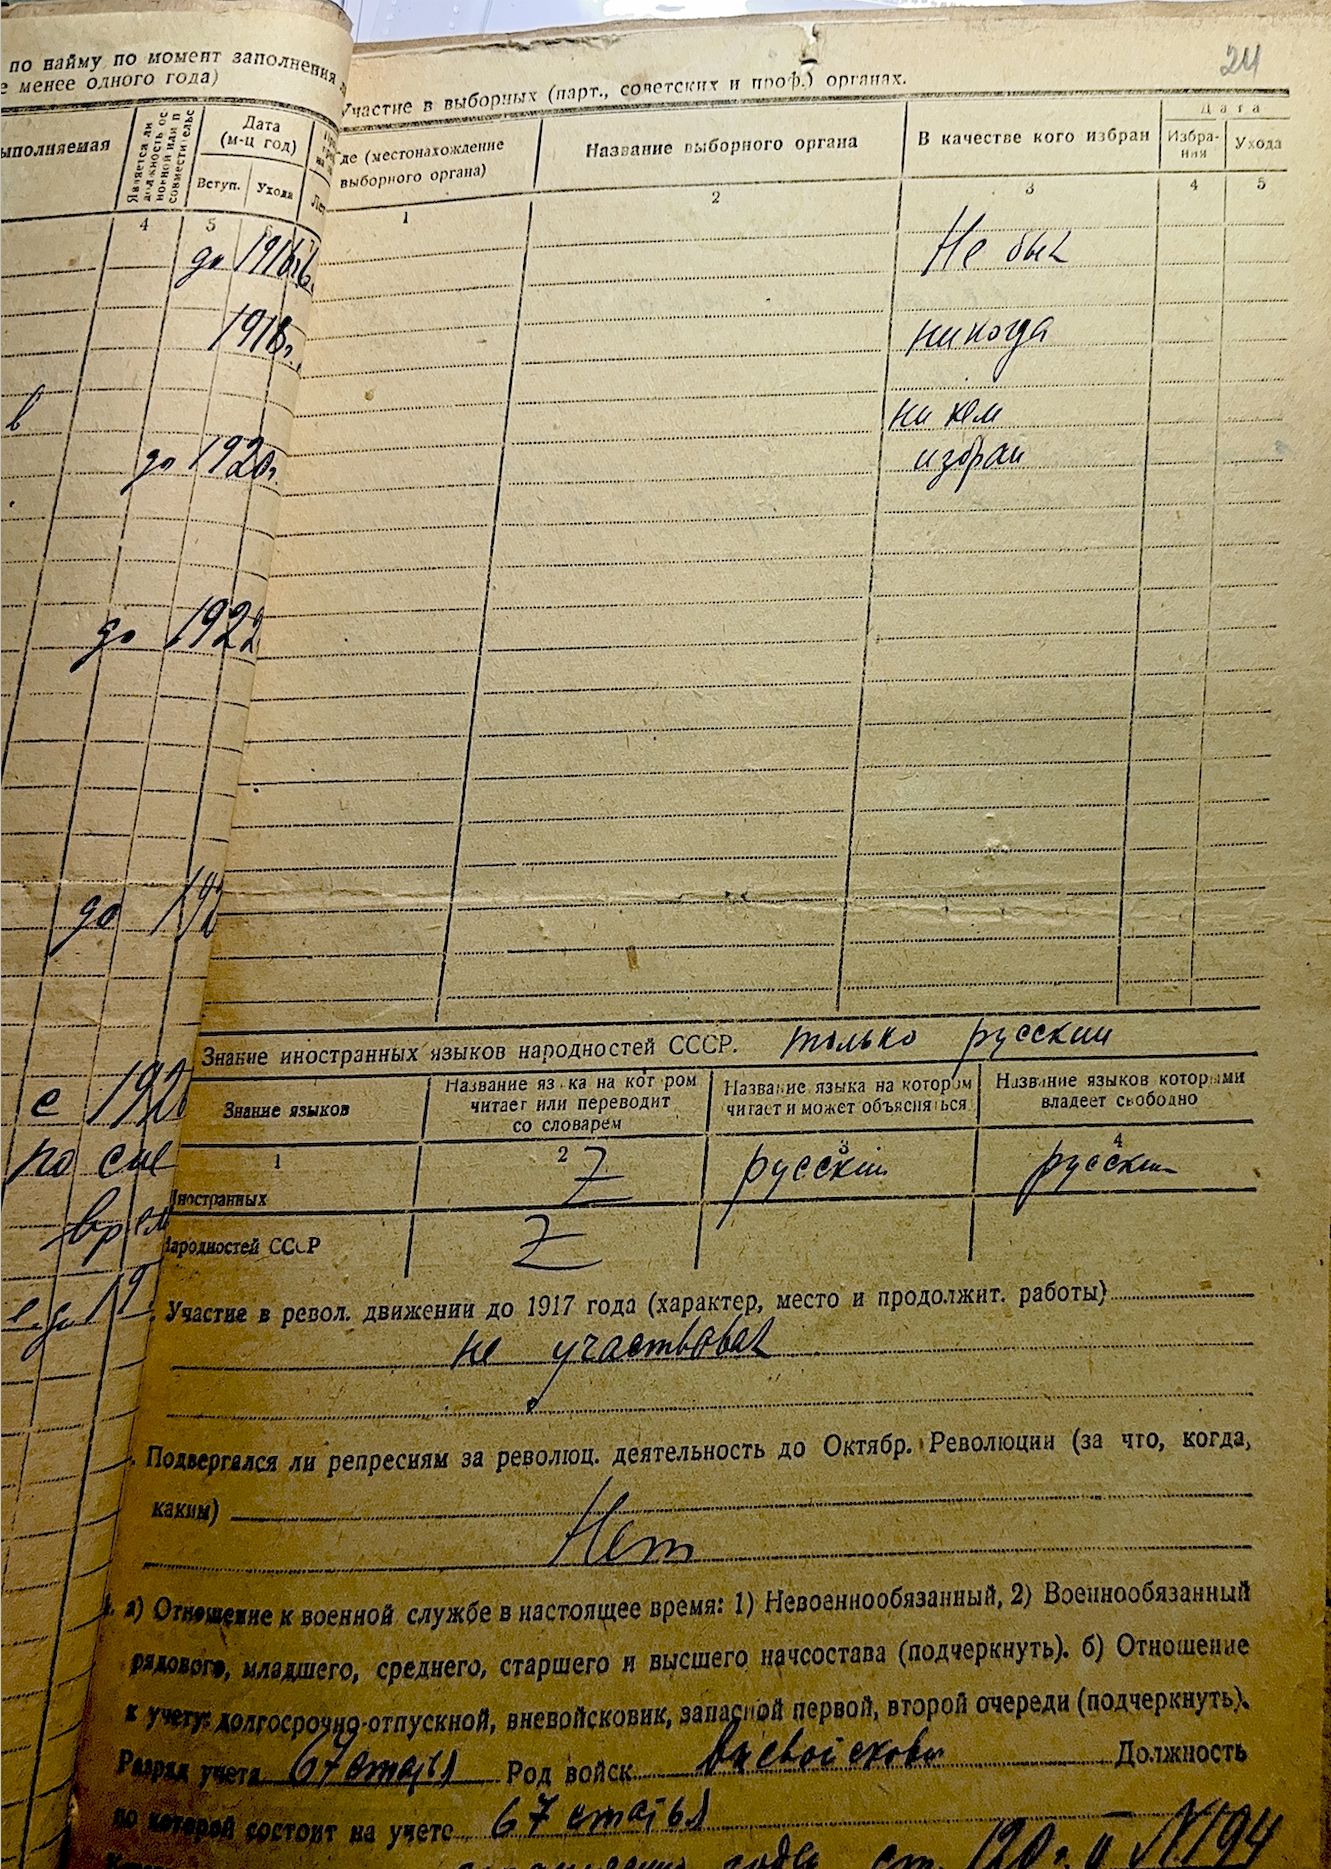 24
по найму по момент заполнения
менее одного года)
выполняемая
Является ли
должность ос
новной или п
совместительс
Дата
(м-ц год)
Вступ.
Ухода
4
5
6
7
до 1916 г.
1918 г.
в
до 1920 г.
до 1922
до 192
с 192
по сие
врем
Участие в выборных (парт., советских и проф.) органах.
Где (местонахождение
выборного органа)
Название выборного органа
В качестве кого избран
Дата
Избра-
ния
Ухода
1
2
3
4
5
Не был
никогда
ни кем
избран
Знание иностранных языков народностей СССР. только русский
Знание языков
Название языка на котором
читает или переводит
со словарем
Название языка на котором
читает и может объясняться
Название языков которыми
владеет свободно
1
2
3
4
Иностранных
Z
русский
русский
Народностей СССР
Z
Участие в револ. движении до 1917 года (характер, место и продолжит. работы)
не участвовал
Подвергался ли репресиям за революц. деятельность до Октябр. Революции (за что, когда,
каким)
Нет
а) Отношение к военной службе в настоящее время: 1) Невоеннообязанный, 2) Военнообязанный
рядового, младшего, среднего, старшего и высшего начсостава (подчеркнуть). б) Отношение
к учету: долгосрочно-отпускной, вневойсковик, запасной первой, второй очереди (подчеркнуть).
Разряд учета 67 статья Род войск вневойсковик Должность
по которой состоит на учете 67 статья
ст. 120 г. II N 194